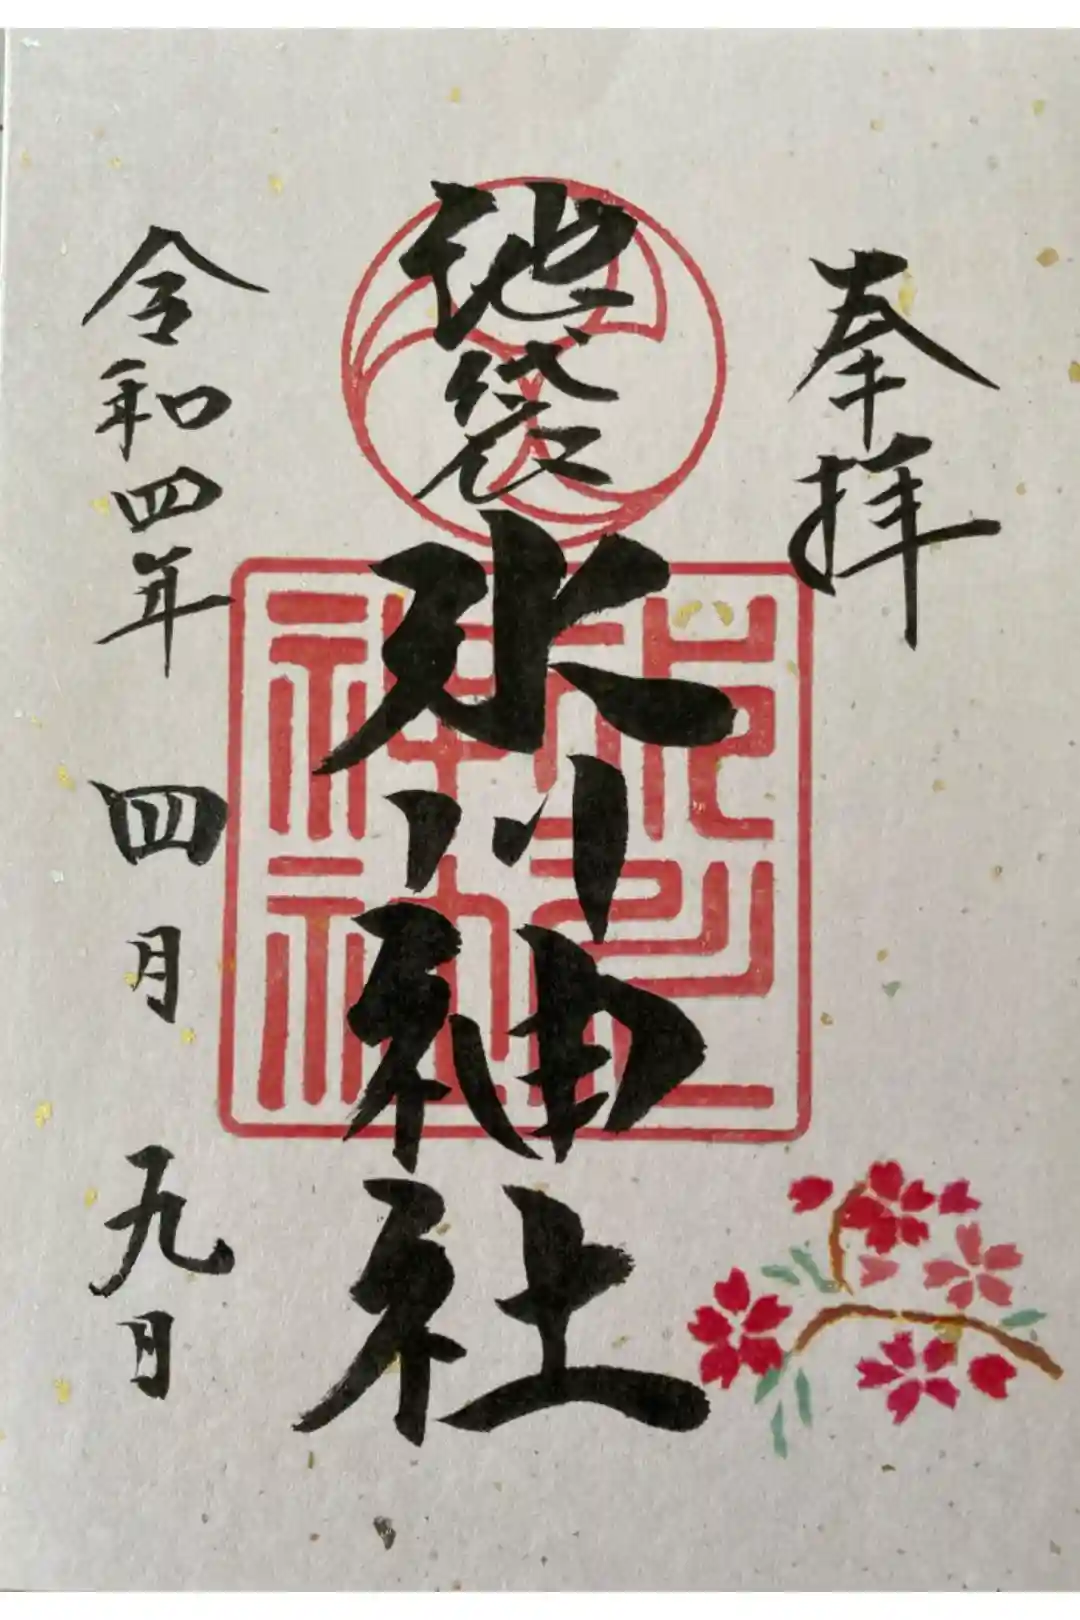 奉拝
池袋
氷川神社
令和四年四月九日